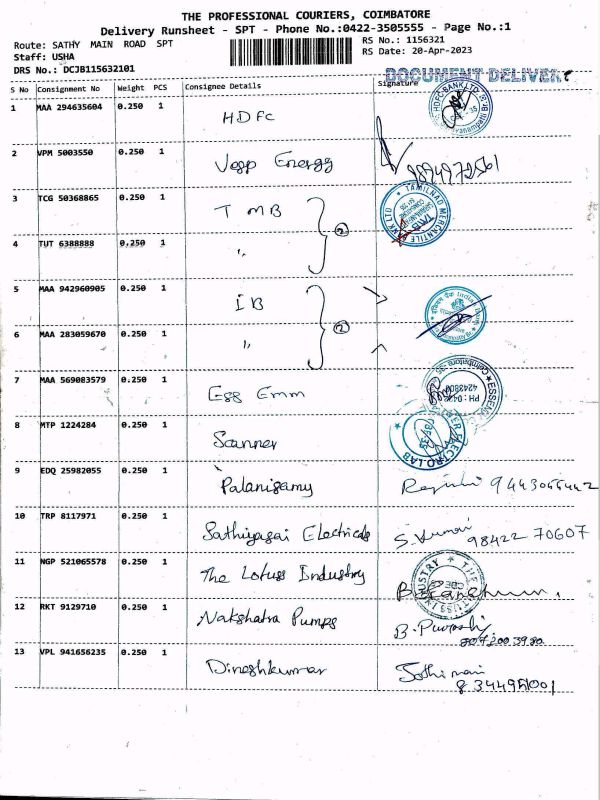 THE PROFESSIONAL COURIERS, COIMBATORE
Delivery Runsheet - SPT - Phone No.:0422-3505555 - Page No.:1
Route: SATHY MAIN ROAD SPT RS No.: 1156321
Staff: USHA RS Date: 20-Apr-2023
DRS No.: DCJB115632101
DOCUMENT DELIVERY
S No Consignment No Weight PCS Consignee Details Signature
1 MAA 294635604 0.250 1 HDFC
2 VPM 5003550 0.250 1 Energy
3 TCG 50368865 0.250 1 TMB
TAMILNAD MERCANTILE BANK LTD
4 TUT 6388888 0.250 1 " 2
5 MAA 942960905 0.250 1 IB
6 MAA 283059670 0.250 1 " 2
7 MAA 569083579 0.250 1 Ess Emm
8 MTP 1224284 0.250 1 Scanner
ELECTRO LAB
9 EDQ 25982055 0.250 1 Palanisamy
10 TRP 8117971 0.250 1 Sathiyasai Electricals S. Kumar
98422 70607
11 NGP 521065578 0.250 1 The Lotuss Industry
12 RKT 9129710 0.250 1 Nakshatra Pumps B.
13 VPL 941656235 0.250 1 Dineshkumar Jothi mani